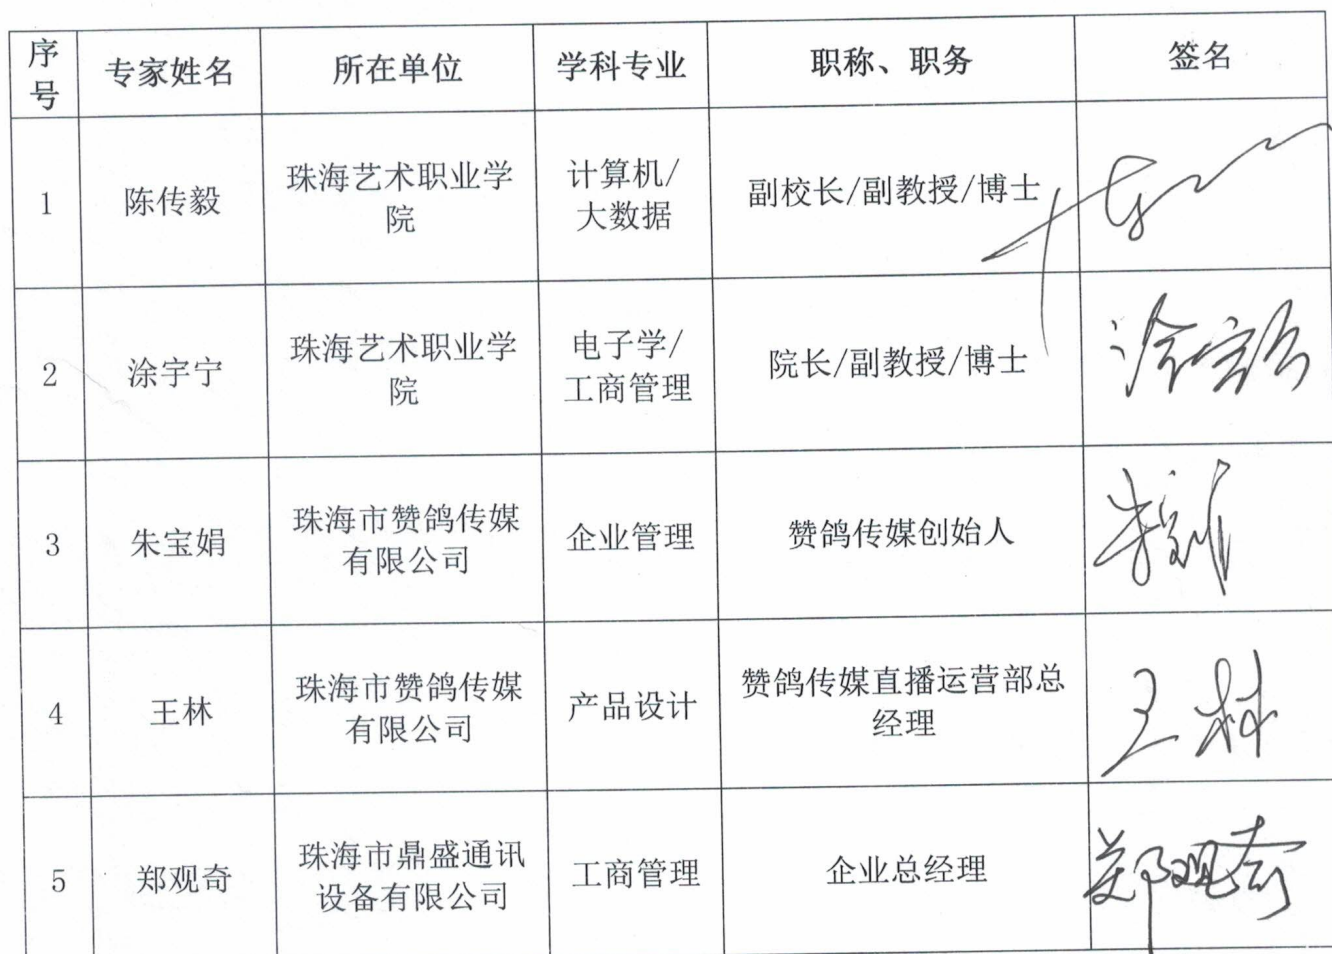 序号 专家姓名 所在单位 学科专业 职称、职务 签名
1 陈传毅 珠海艺术职业学院 计算机/大数据 副校长/副教授/博士
2 涂宇宁 珠海艺术职业学院 电子学/工商管理 院长/副教授/博士 涂宇宁
3 朱宝娟 珠海市赞鸽传媒有限公司 企业管理 赞鸽传媒创始人
4 王林 珠海市赞鸽传媒有限公司 产品设计 赞鸽传媒直播运营部总经理 王林
5 郑观奇 珠海市鼎盛通讯设备有限公司 工商管理 企业总经理 郑观奇